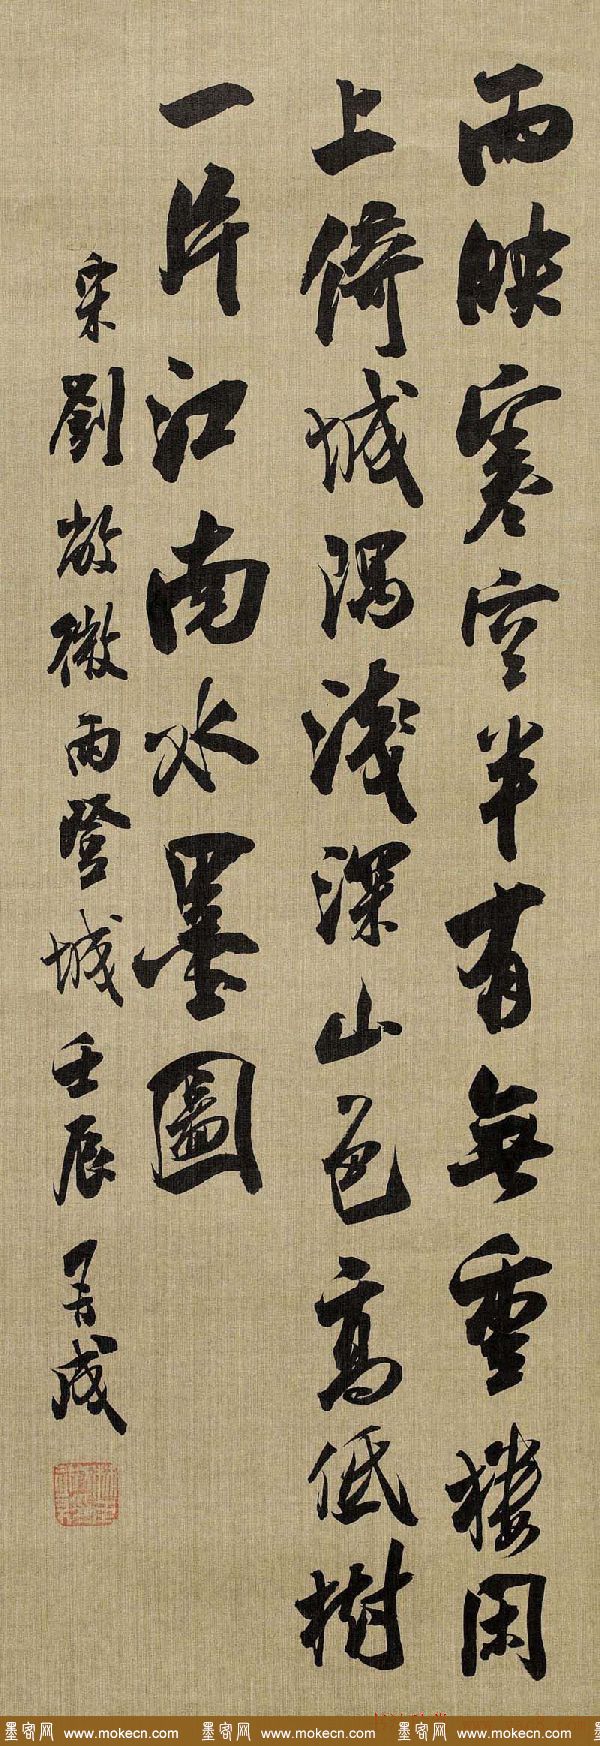 雨映寒空半有無重樓閑
上倚城隅淺深山色高低樹
一片江南水墨圖
宋劉敞微雨登城壬辰
成
墨客网 www.mokecn.com 墨客网 www.mokecn.com 墨客网 www.mokecn.com